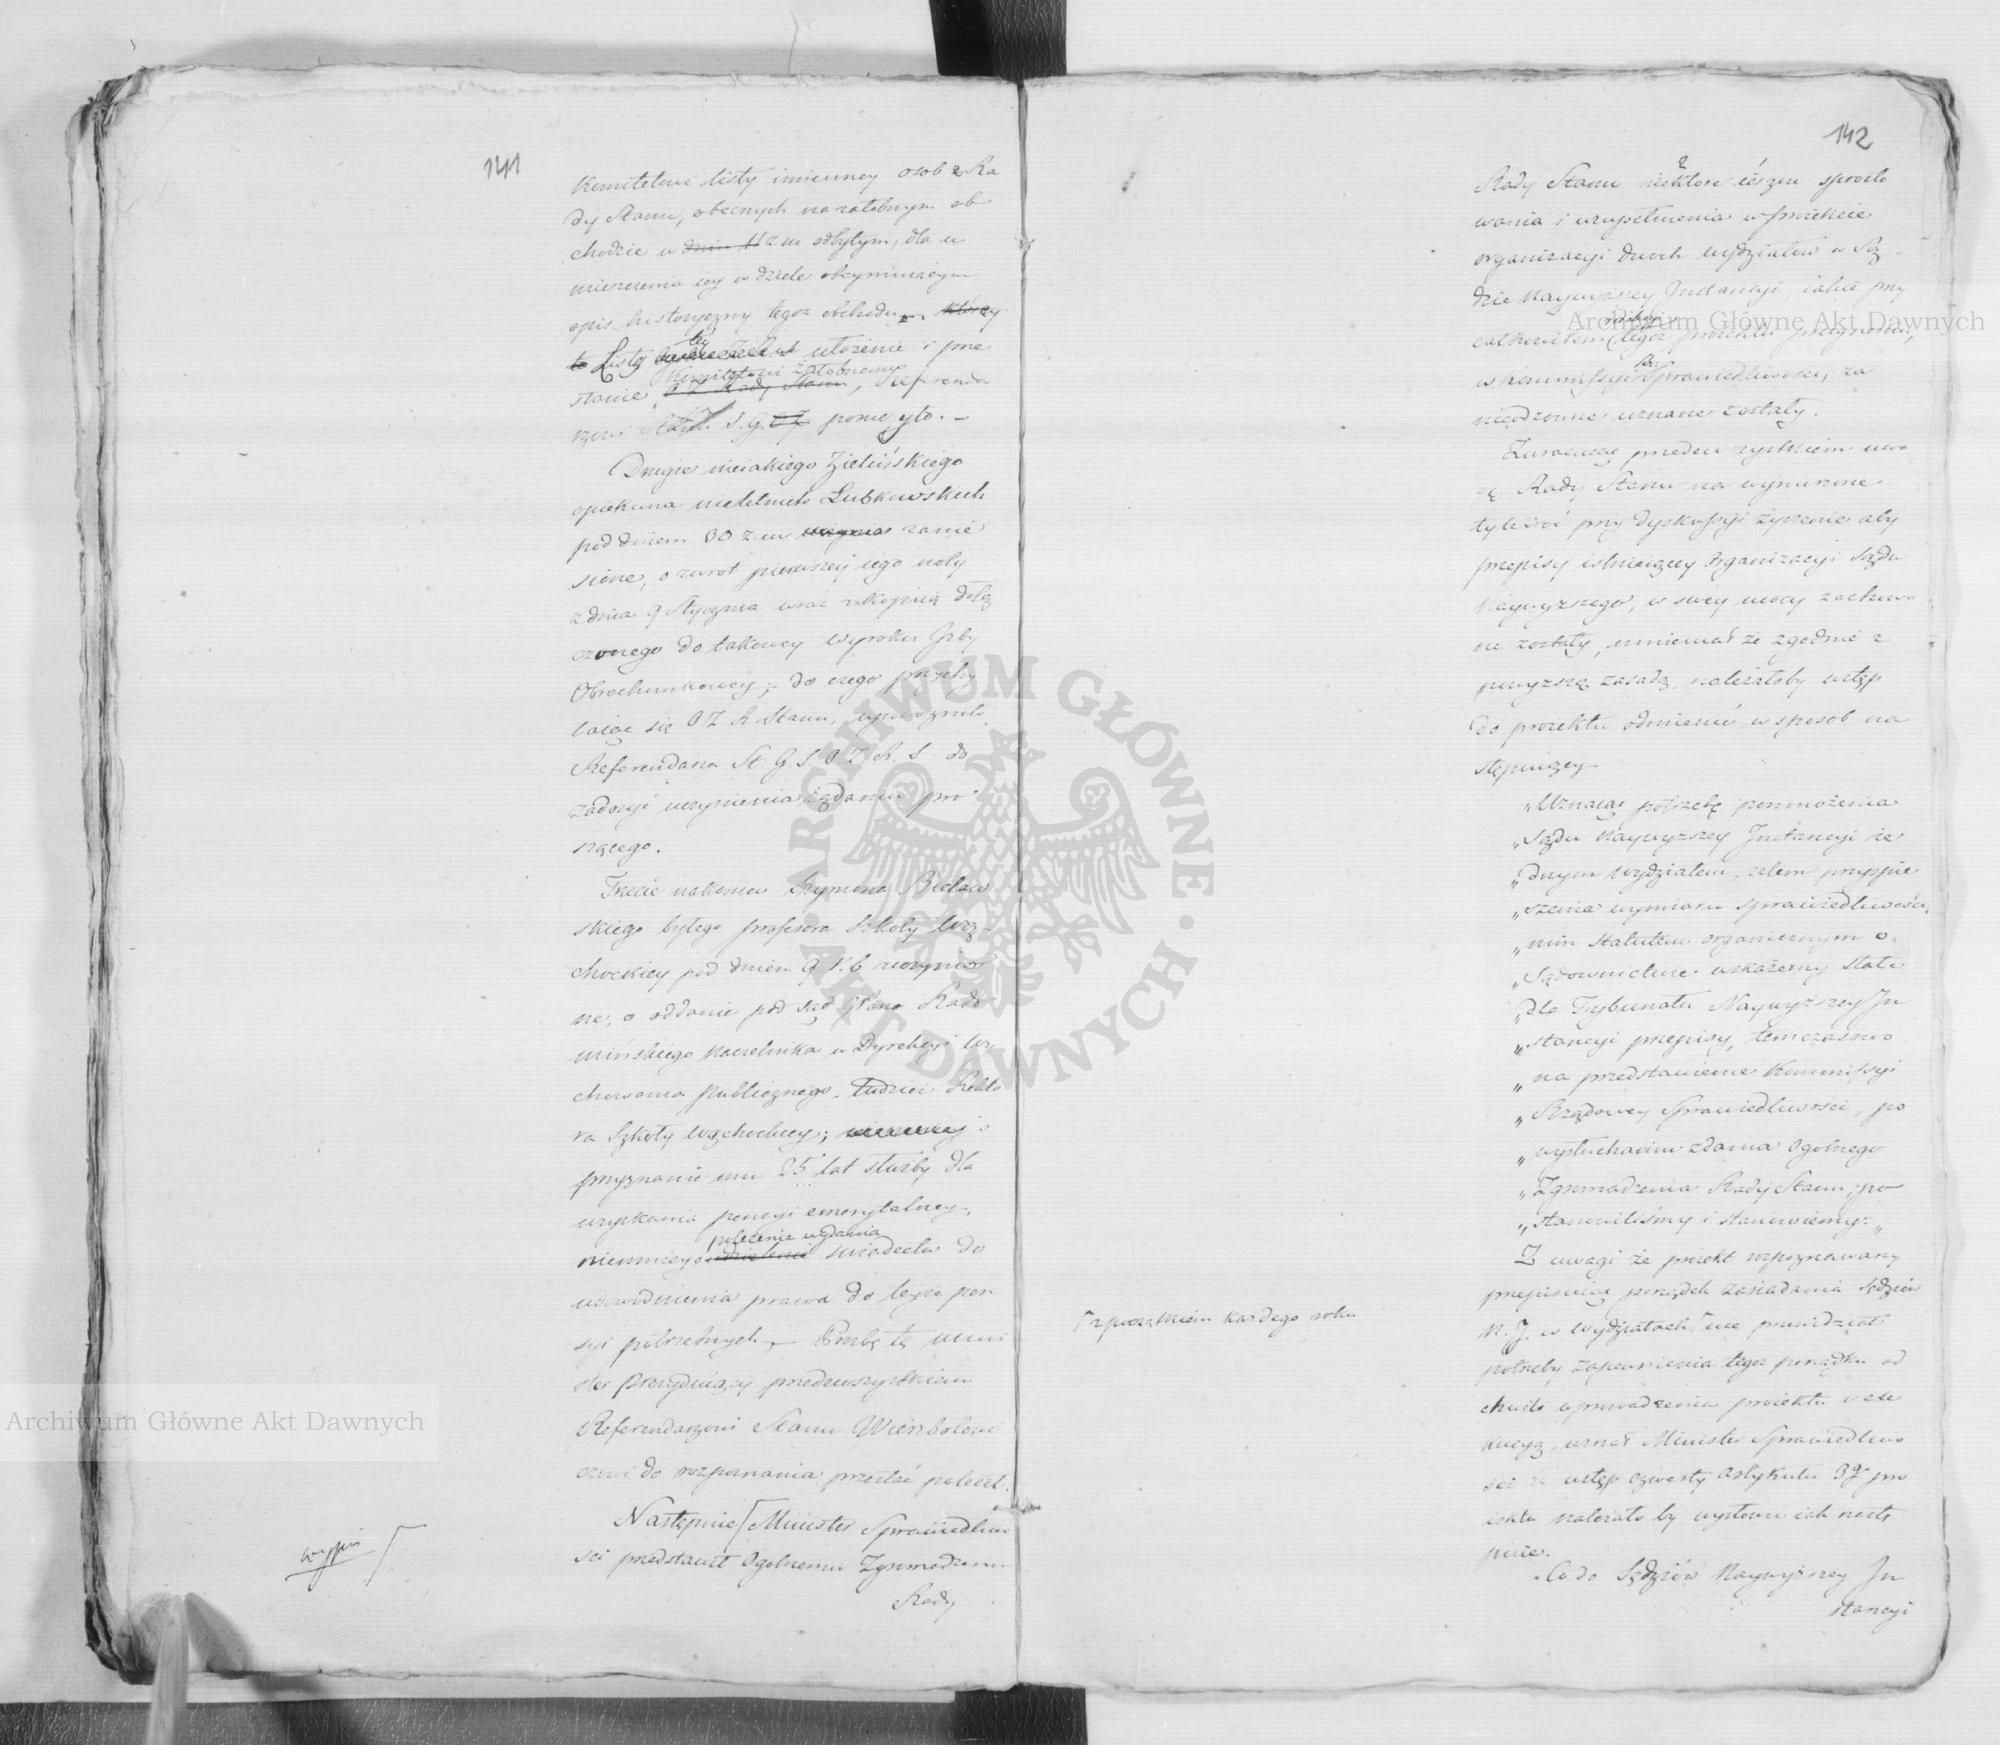 141
Komitetowi listy imienney osob z Ra
dy Stanu, obecnych na załobnym ob
chodzie w dniu 11 z. m. odbytym, dla u
mieszczenia iey w dziele obeymuiącym
opis historyczny tegoż obchodu, którey
to Listy tey ułożenie i prze
słanie Komitetowi żałobnemu O Z Rady Stanu, Referenda
rzowi Stanu S. G. O Z poruczyło. –
Drugie nieiakiego Zielińskiego
opiekuna nieletnich Łubkowskich
pod dniem 30 z. m. zanie
sione, o zwrot pierwszey iego noty
z dnia 9 Stycznia wraz z kopią dołą
czonego do takowey wyroku Izby
Obrachunkowey; do czego przychy
laiąc się O Z R Stanu, upoważniło
Referendarza St. G S. O Z. R. S do
zadosyć uczynienia żądaniu pro
szącego.
Trzecie nakoniec Szymona Bielaw
skiego byłego professora Szkoły Wą
chockiey pod dniem 9 t. b uczynio
ne, o oddanie pod sąd JPana Rado
mińskiego Naczelnika w Dyrekcyi Wy
chowania Publicznego, tudzież Rekto
ra Szkoły Wąchockiey;
przyznanie mu 25 lat służby dla
uzyskania pensyi emerytalney,
niemniey o polecenie wydania udzielenie świadectw do
udowodnienia prawa do teyże pen
syi potrzebnych, – Prozbę tę Mini
ster Prezyduiący przedewszystkiem
Referendarzowi Stanu Wierzbołowi
czowi do rozpoznania przesłać polecił.
Następnie [ Minister Sprawiedliwo
sci przedstawił Ogolnemu Zgromadzeniu
Rady
wypis [
142
Rady Stanu niektore ieszcze sprosto
wania i uzupełnienia w proiekcie
organizacyi dwoch wydziałow w Są
dzie Naywyższey Instancyi, iakie przy
całkowitem tegoż proiektu przeyrzeniu,
w Kommissyi Rz. Sprawiedliwosci, za
niezbędne uznane zostały.
Zwracaiąc przedewszystkiem uwa
gę Rady Stanu na wynurzone
tylekroć przy dyskussyi życzenie aby
przepisy istnieiącey Organizacyi Sądu
Naywyższego, w swey mocy zachowa
ne zostały, mniemał że zgodnie z
powyższą zasadą, należałoby wstęp
do proiektu odmienić w sposob na
stępuiący –
„Uznaiąc potrzebę pomnożenia
„Sądu Naywyższey Instancyi ie
„dnym wydziałem, celem przyspie
„szenia wymiaru sprawiedliwości,
„nim statutem organicznym o
„Sądownictwie wskażemy stałe
„dla Trybunału Naywyższey In
„stancyi przepisy, temczasowo
„na przedstawienie Kommissyi
„Rządowey Sprawiedliwosci, po
„wysłuchaniu zdania Ogolnego
„Zgromadzenia Rady Stanu, po
„stanowiliśmy i stanowiemy:„
Z uwagi że proiekt rozpoznawany
przepisuiąc porządek zasiadania Sędziów
N. I. w Wydziałach [ nie przewidział
[ z początkiem każdego roku
potrzeby zapewnienia tegoż porządku od
chwili wprowadzenia proiektu w exe
kucyą, uznał Minister Sprawiedliwo
sci że wstęp czwarty Artykułu 39 pro
iektu należało by wysłowić iak nastę
pnie.
„Co do Sędziów Naywyższey In
stancyi